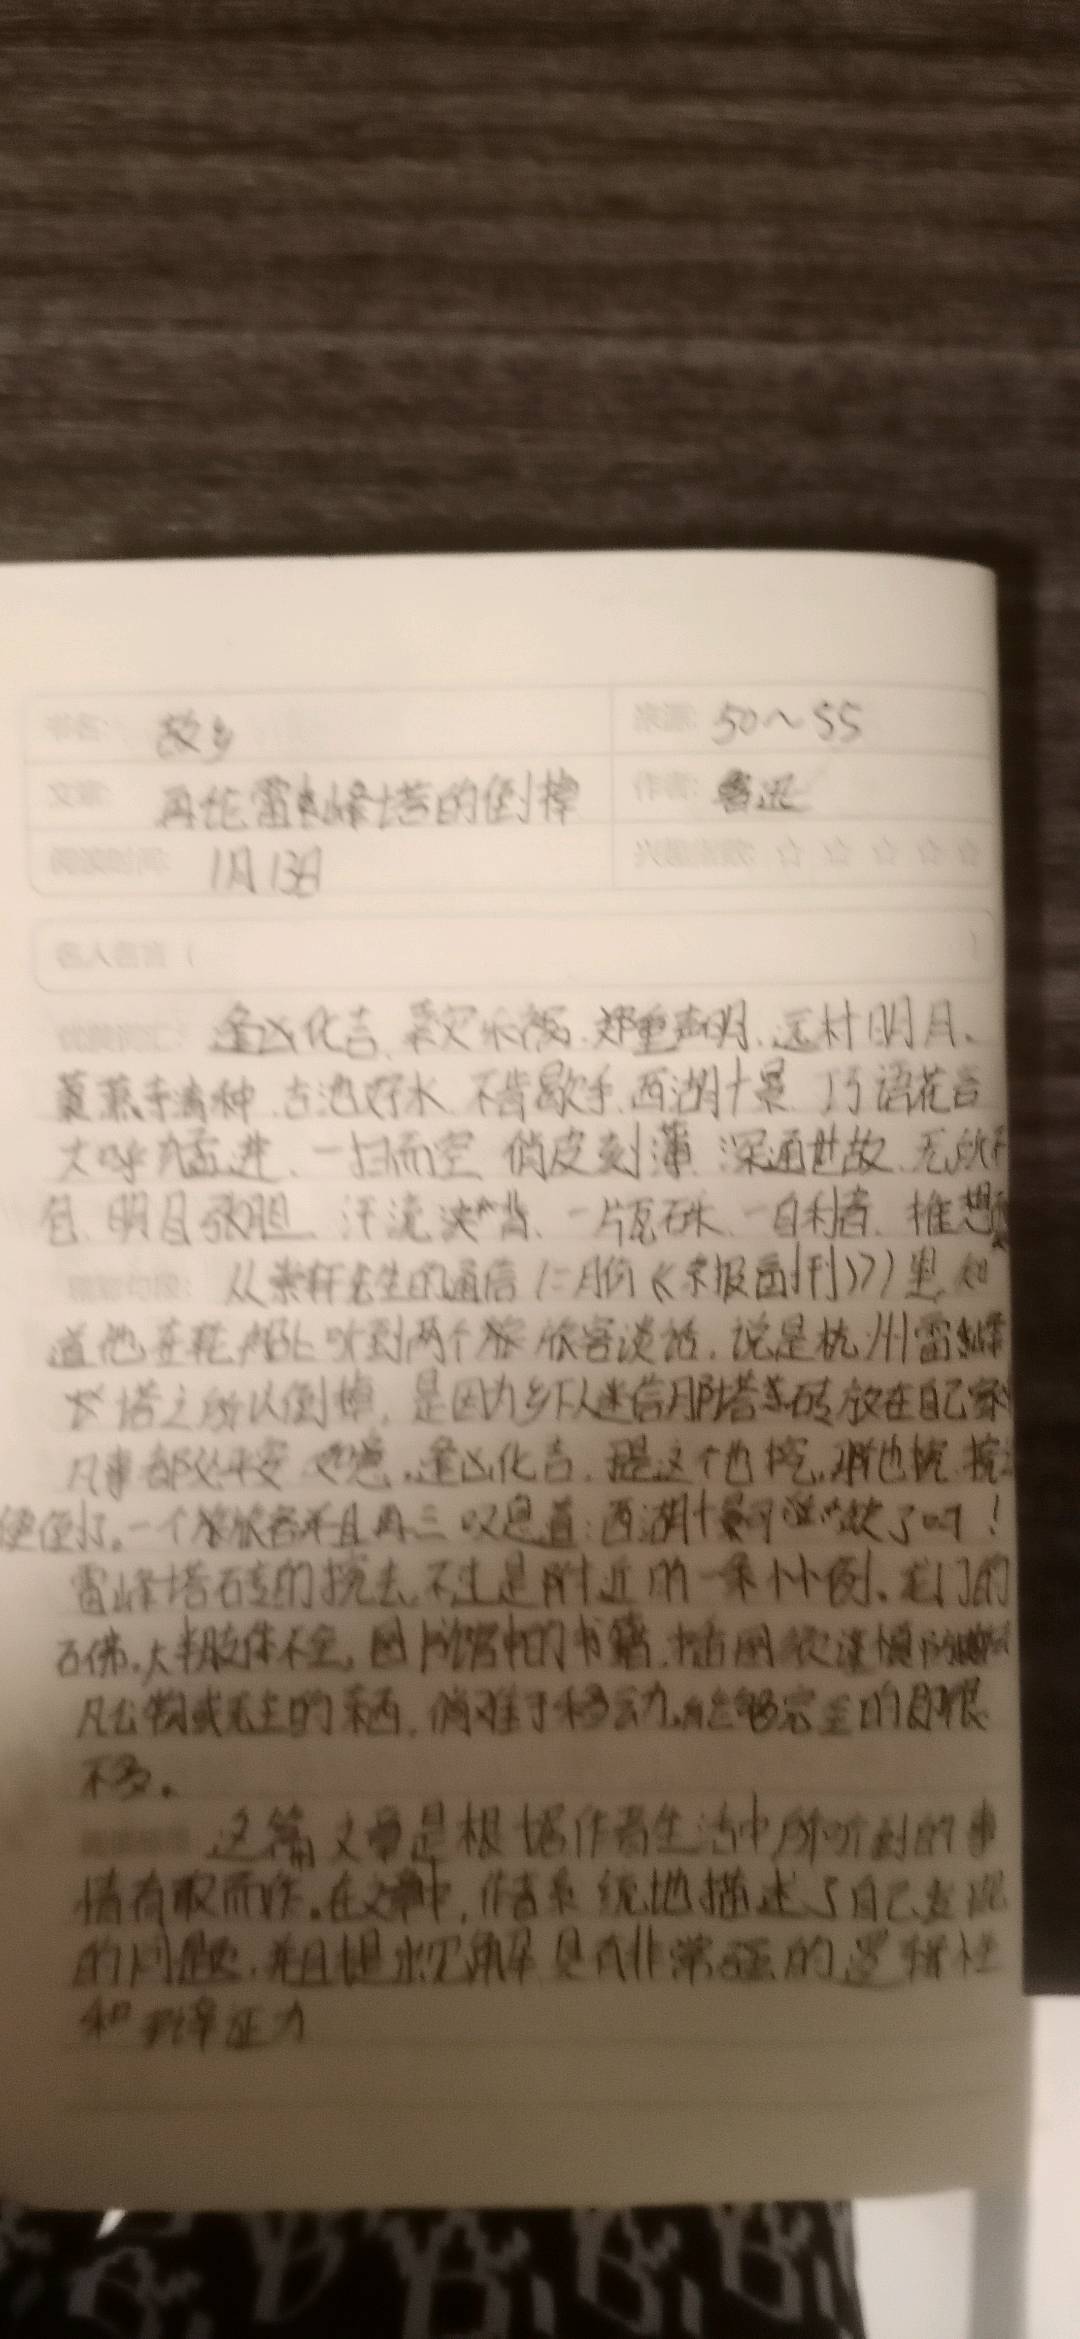 书名: 故乡 来源: 50～55
文章: 再论雷峰塔的倒掉 作者: 鲁迅
阅读时间: 1月13日 ☆ ☆ ☆ ☆ ☆
名人名言 ( )
逢凶化吉、郑重声明、远村明月、
古池好水、不肯歇手、西湖十景、巧语花言
大呼猛进、一扫而空、俏皮刻薄、深通世故、无所不
包、明目张胆、汗流浃背、一片瓦砾、自利者、推想
从崇轩先生的通信(二月份《京报副刊》)里,知
道他在轮船上听到两个旅客谈话,说是杭州雷峰
塔之所以倒掉,是因为乡下人迷信那塔砖放在自己家
凡事都必平安、如意,逢凶化吉,这个也挖,那也挖,挖
便倒了。一个旅客并且再三叹息道:西湖十景可
雷峰塔砖的挖去,不过是附近的一条小小例。龙门的
石佛,大半肢体不全,图书馆中的书籍,插图须谨慎
凡公物或无主的东西,倘难于移动,能够完全的即很
不多。
这篇文章是根据作者生活中所听到的事
情有取而作。在文章中,作者系统地描述了自己发现
的问题,并且提出见解,具有非常强的逻辑性
和辩证力